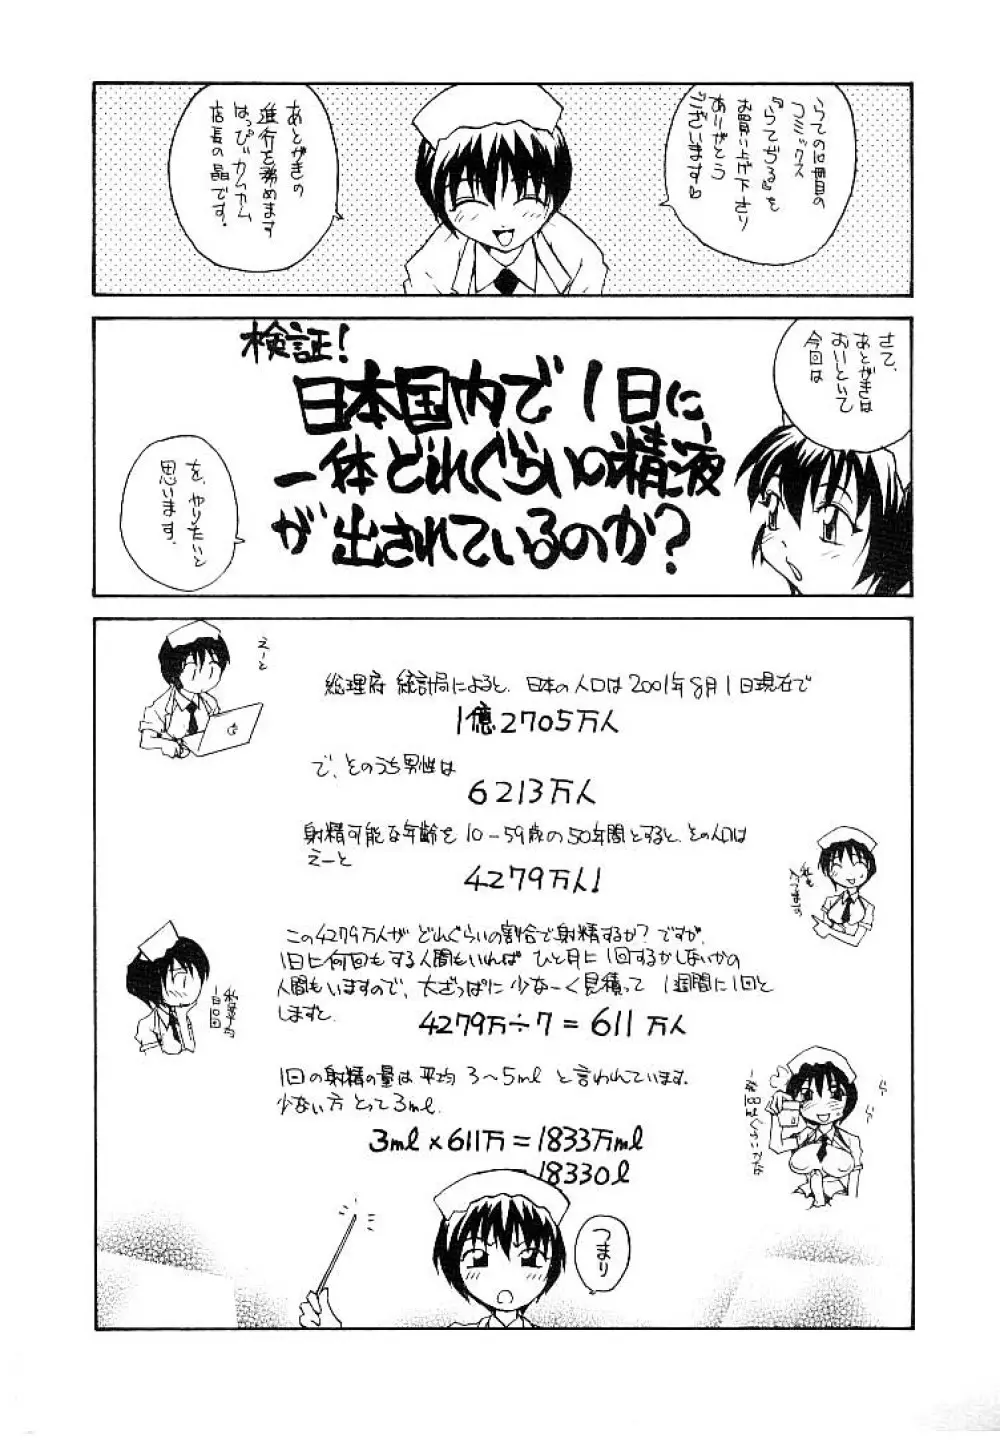 らての12冊目の
コミックス
『らてぢる』を
お買い上げ下さり
ありがとう
ございます
あとがきの
進行を務めます
はっぴぃカムカム
店長の晶です。
さて、
あとがきは
おいといて
今回は
検証！
日本国内で1日に
一体どれぐらいの精液
が出されているのか？
を、やりたいと
思います。
えーと
総理府 統計局によると、日本の人口は2001年8月1日現在で
1億2705万人
で、そのうち男性は
6213万人
射精可能な年齢を10-59歳の50年間とすると、その人口は
えーと
4279万人！
この4279万人がどれぐらいの割合で射精するか？ですが、
1日に何回もする人間もいれば ひと月に1回するかしないかの
人間もいますので、大ざっぱに少なーく見積って 1週間に1回と
しますと、
4279万÷7＝611万人
私は平均
1日10回
1回の射精の量は平均 3〜5ml と言われています。
少ない方とって3ml.
3ml×611万＝1833万ml
＝18330l
一発100mlぐらいかな
つまり